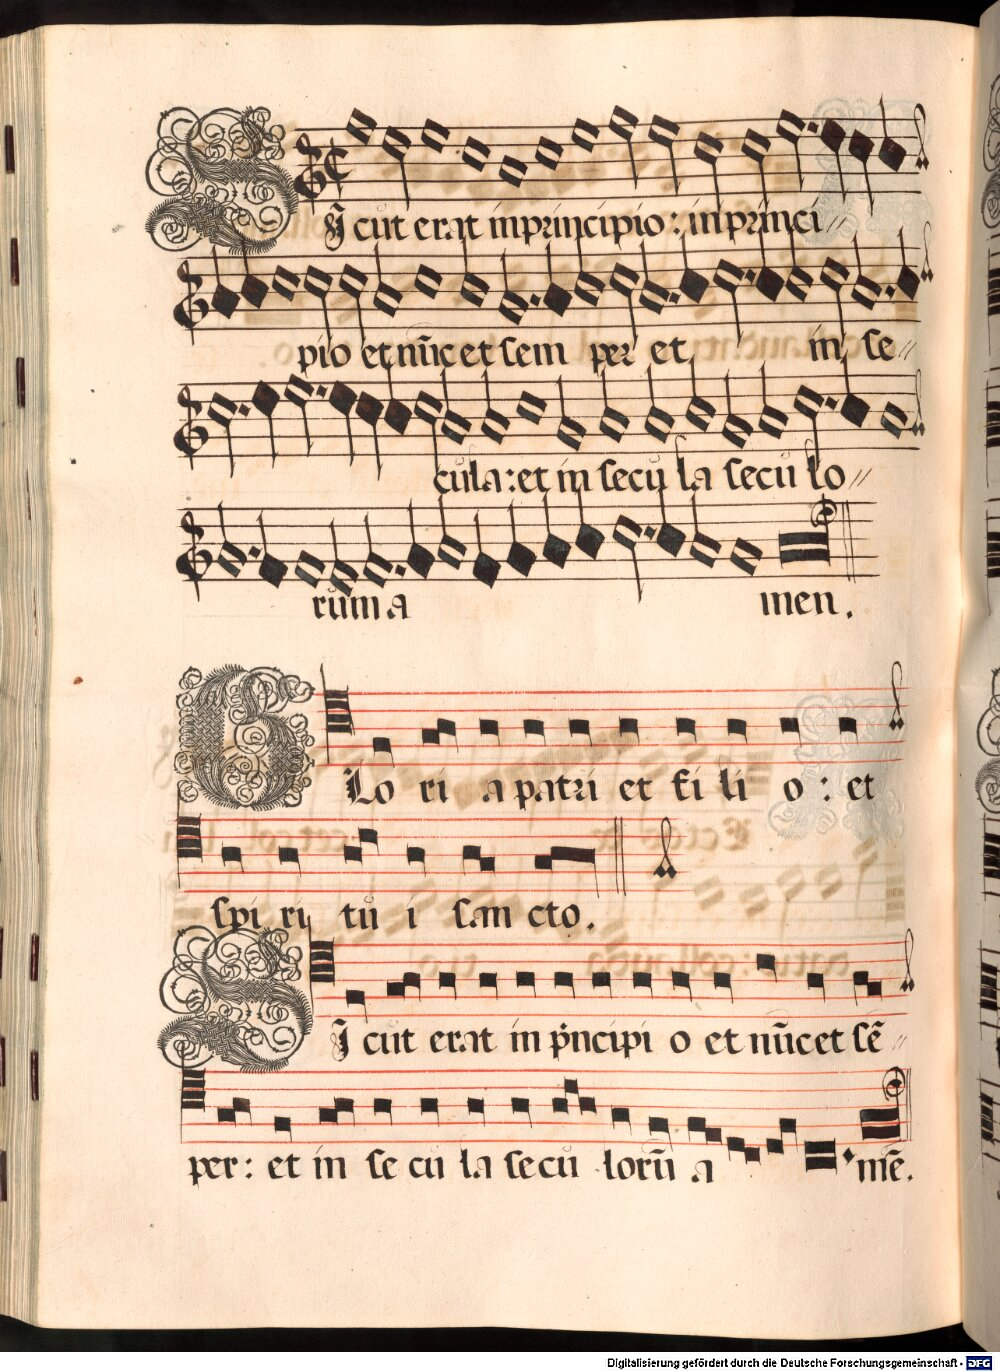 Sicut erat in principio : in princi //
pio et nūc et sem per et in se //
cula : et in secu la secu lo //
rum a men .
GLo ri a patri et fi li o : et
spi ri tu i san cto .
Sicut erat in pncipi o et nūc et sē //
per : et in se cu la secu lorū a mē .
Digitalisierung gefördert durch die Deutsche Forschungsgemeinschaft - DFG